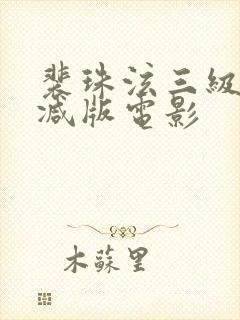 裴珠泫三級
减版電影
木蘇里